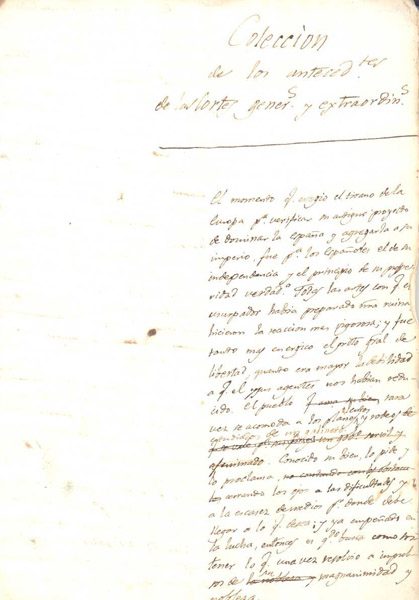 Coleccion
de los anteced.tes
de las Cortes gener.s y extraordin.s
El momento q.e eligio el tirano de la
Europa p.a verificar su antiguo proyecto
de dominar la españa y agregarla a su
imperio, fue p.a los Españoles el de su
independencia y el principio de su prosperi
ridad verdad.a Todas las artes con q.e el
usurpador habia preparado n̄ra ruina
hicieron la reaccion mas vigorosa; y fue
tanto mas energico el grito gral de
libertad, quando era mayor la debilidad
a q.e el y sus agentes nos habian redu
cido. El pueblo q.e rara
vez se acomoda a los planes lentos y rodeos de
afeminado. Conocido su bien, lo pide y
lo proclama, no contando con obstacu
los cerrando los ojos a las dificultades y
a la escasez de medios p.r donde debe
llegar a lo q.e desea; y ya empeñado en
la lucha, entonces es q.do busca como sos
tener lo q.e una vez resolvio a impul
sos de la nobleza y magnanimidad y
nobleza.